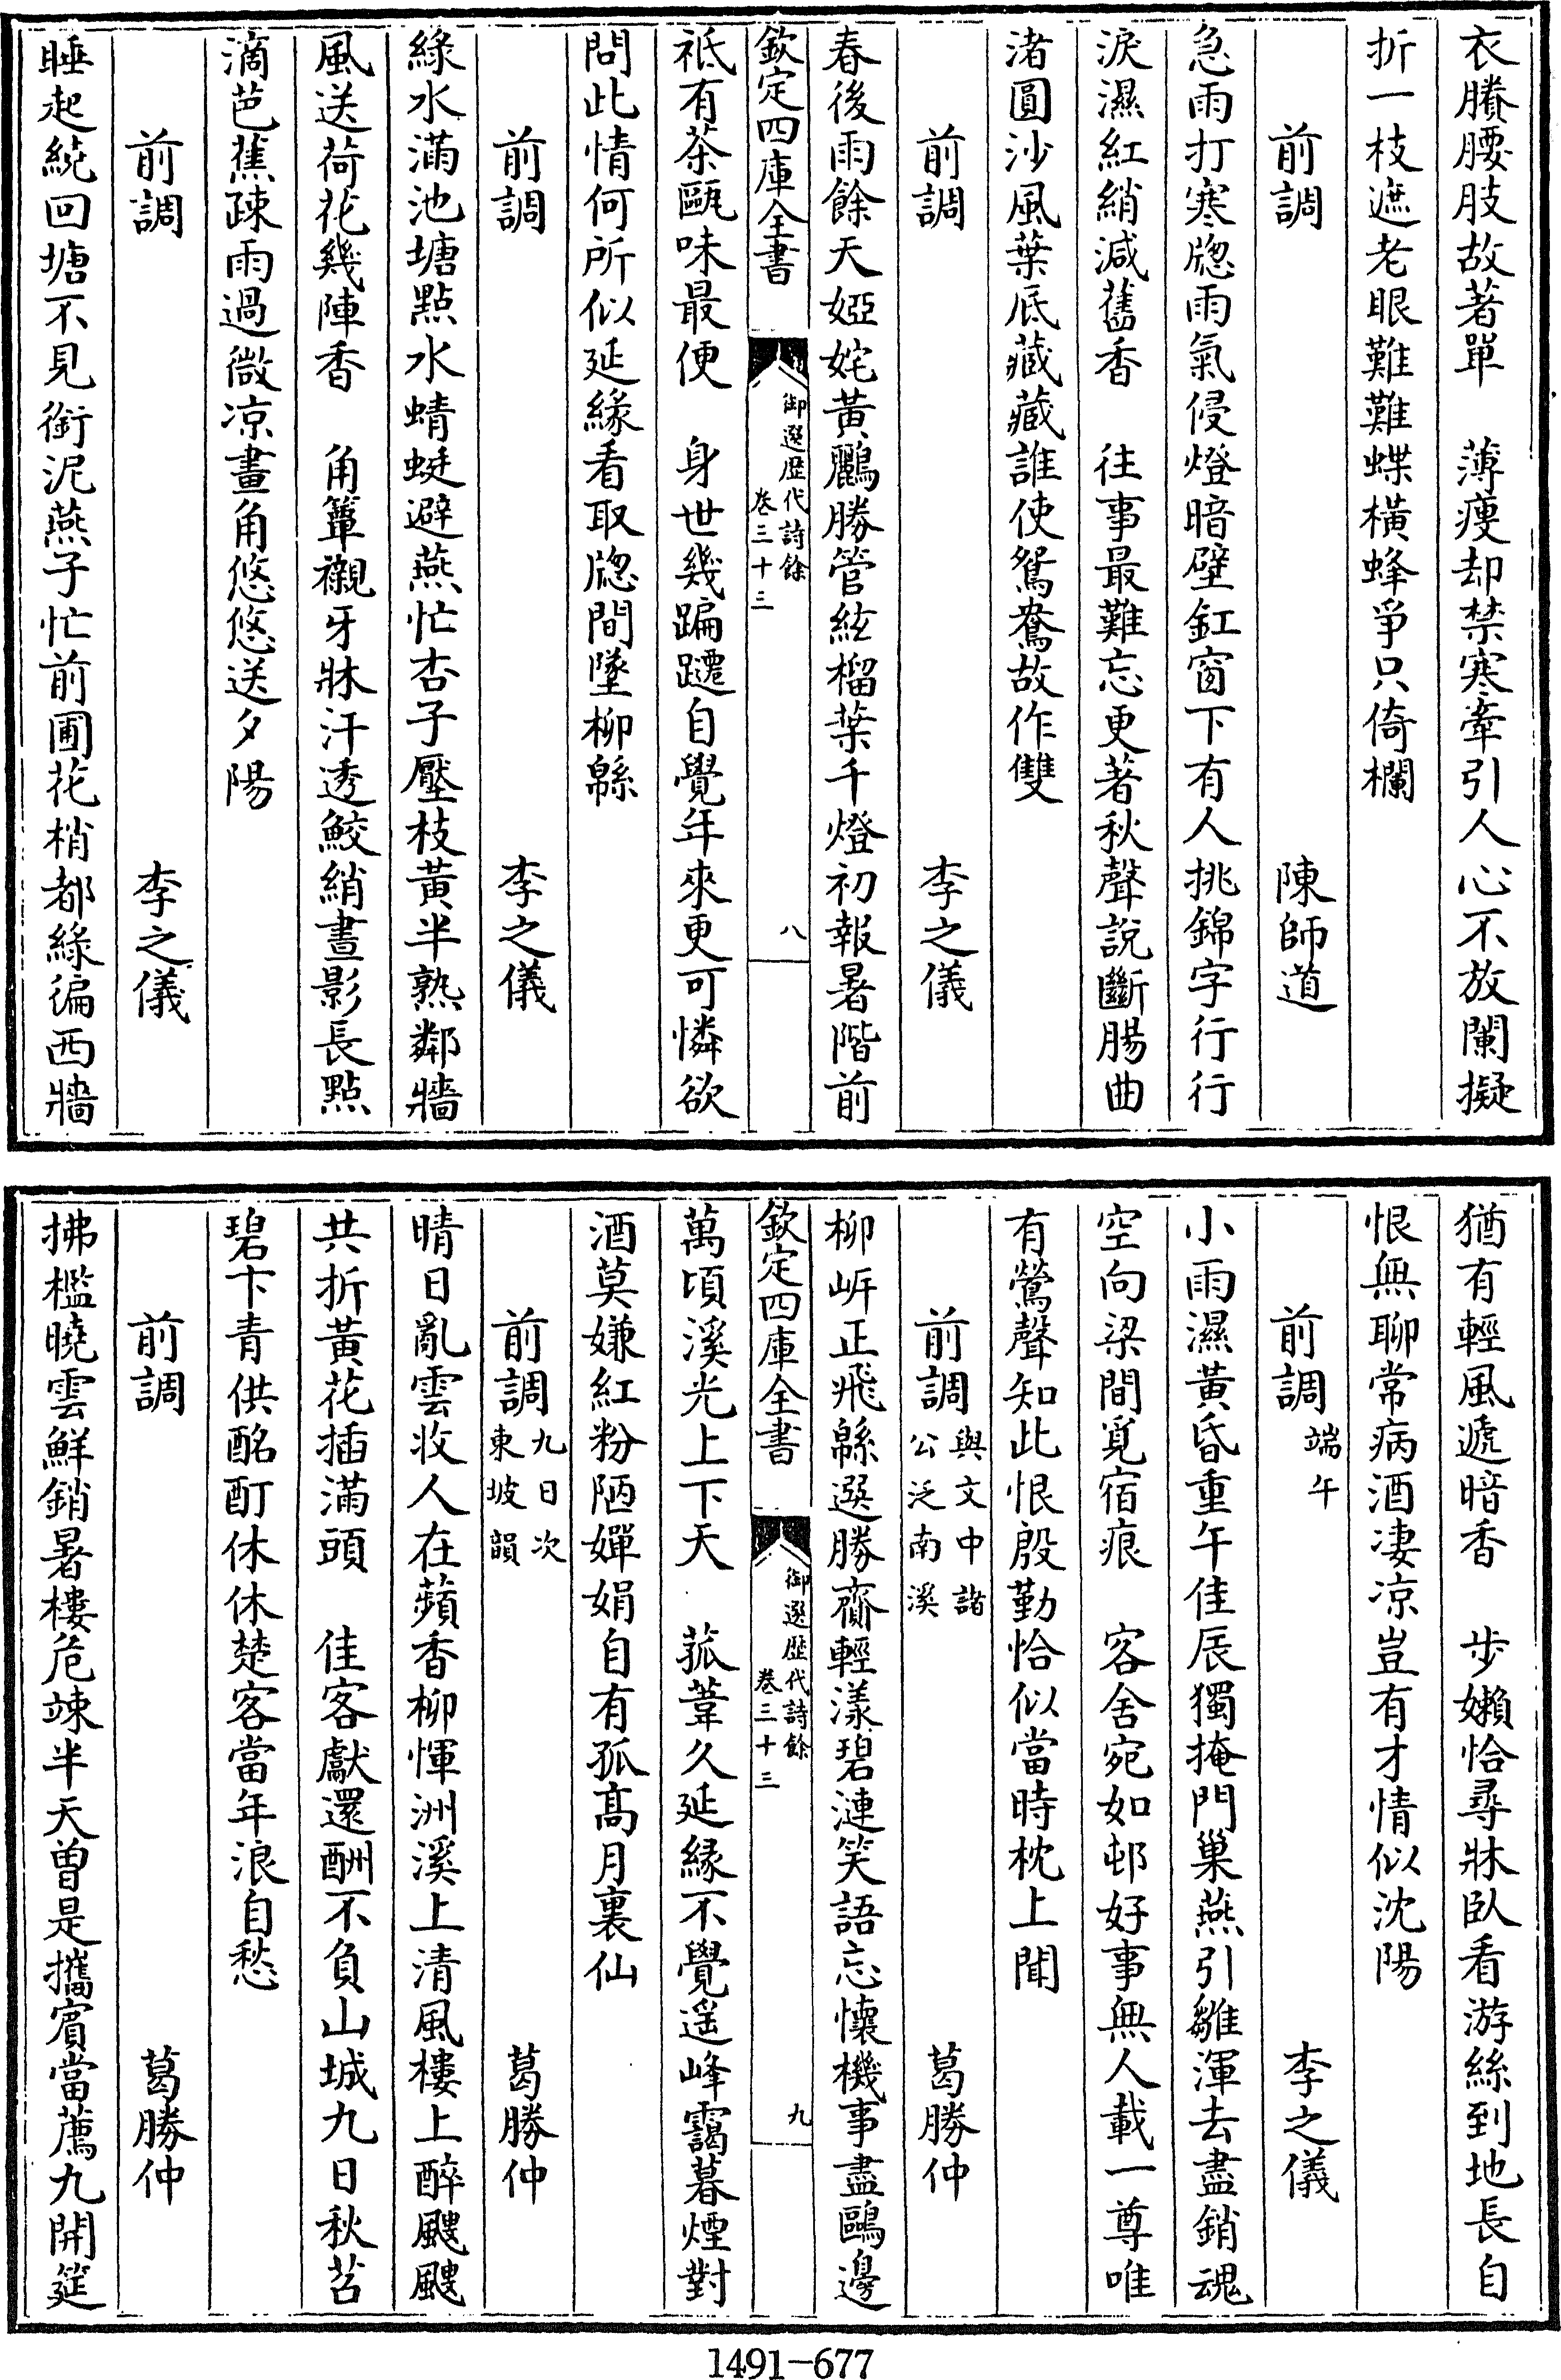 衣賸腰肢故著單　薄瘦却禁寒牽引人心不放闌擬
折一枝遮老眼難難蝶橫蜂爭只倚欄
前調　陳師道
急雨打寒牕雨氣侵燈暗壁釭窗下有人挑錦字行行
淚濕紅綃減舊香　往事最難忘更著秋聲說斷腸曲
渚圓沙風葉底藏藏誰使鴛鴦故作雙
前調　李之儀
春後雨餘天婭姹黃鸝勝管絃榴葉千燈初報暑階前
欽定四庫全書　御選歷代詩餘　卷三十三　八
祇有茶甌味最便　身世幾蹁躚自覺年來更可憐欲
問此情何所似延緣看取牕間墜柳緜
前調　李之儀
綠水滿池塘點水蜻蜓避燕忙杏子壓枝黃半熟鄰牆
風送荷花幾陣香　角簟襯牙牀汗透鮫綃晝影長點
滴芭蕉疎雨過微凉畫角悠悠送夕陽
前調　李之儀
睡起繞回塘不見銜泥燕子忙前圃花梢都綠徧西牆
猶有輕風遞暗香　步嬾恰尋牀臥看游絲到地長自
恨無聊常病酒凄凉豈有才情似沈陽
前調　端午　李之儀
小雨濕黃昏重午佳辰獨掩門巢燕引雛渾去盡銷魂
空向梁間覓宿痕　客舍宛如邨好事無人載一尊唯
有鶯聲知此恨殷勤恰似當時枕上聞
前調　與文中諸公泛南溪　葛勝仲
柳岍正飛緜選勝齋輕漾碧漣笑語忘懷機事盡鷗邊
欽定四庫全書　御選歷代詩餘　卷三十三　九
萬頃溪光上下天　菰葦久延緣不覺遥峰靄暮煙對
酒莫嫌紅粉陋嬋娟自有孤髙月裏仙
前調　九日次東坡韻　葛勝仲
晴日亂雲收人在蘋香柳惲洲溪上清風樓上醉颼颼
共折黃花插滿頭　佳客獻還酬不負山城九日秋苕
碧卞青供酩酊休休楚客當年浪自愁
前調　葛勝仲
拂檻曉雲鮮銷暑樓危竦半天曾是攜賓當薦九開筵
1491-677